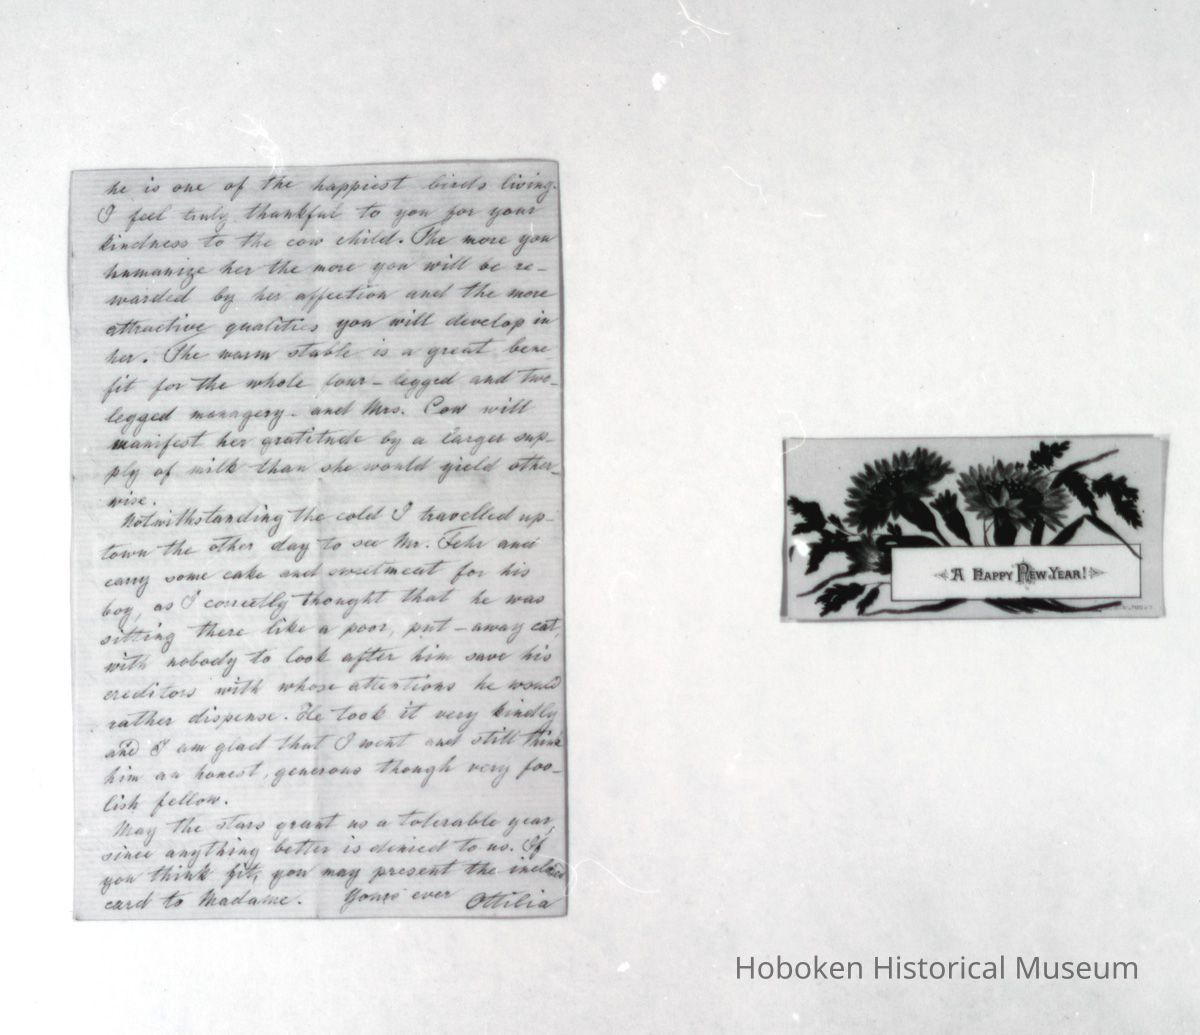 he is one of the happiest birds living.
I feel truly thankful to you for your
kindness to the cow child. The more you
humanize her the more you will be re-
warded by her affection and the more
attractive qualities you will develop in
her. The warm stable is a great bene-
fit for the whole four-legged and two-
legged menagery- and Mrs. Cow will
manifest her gratitude by a larger sup-
ply of milk than she would yield other-
wise.
Notwithstanding the cold I travelled up-
town the other day to see Mr. Fehr and
carry some cake and sweetmeat for his
boy, as I correctly thought that he was
sitting there like a poor, put-away cat,
with nobody to look after him save his
creditors with whose attentions he would
rather dispense. He took it very kindly
and I am glad that I went and still think
him an honest, generous though very foo-
lish fellow.
May the stars grant us a tolerable year,
since anything better is denied to us. If
you think fit, you may present the inclosed
card to Madame. Yours ever Ottilia
A Happy New Year!
Hoboken Historical Museum